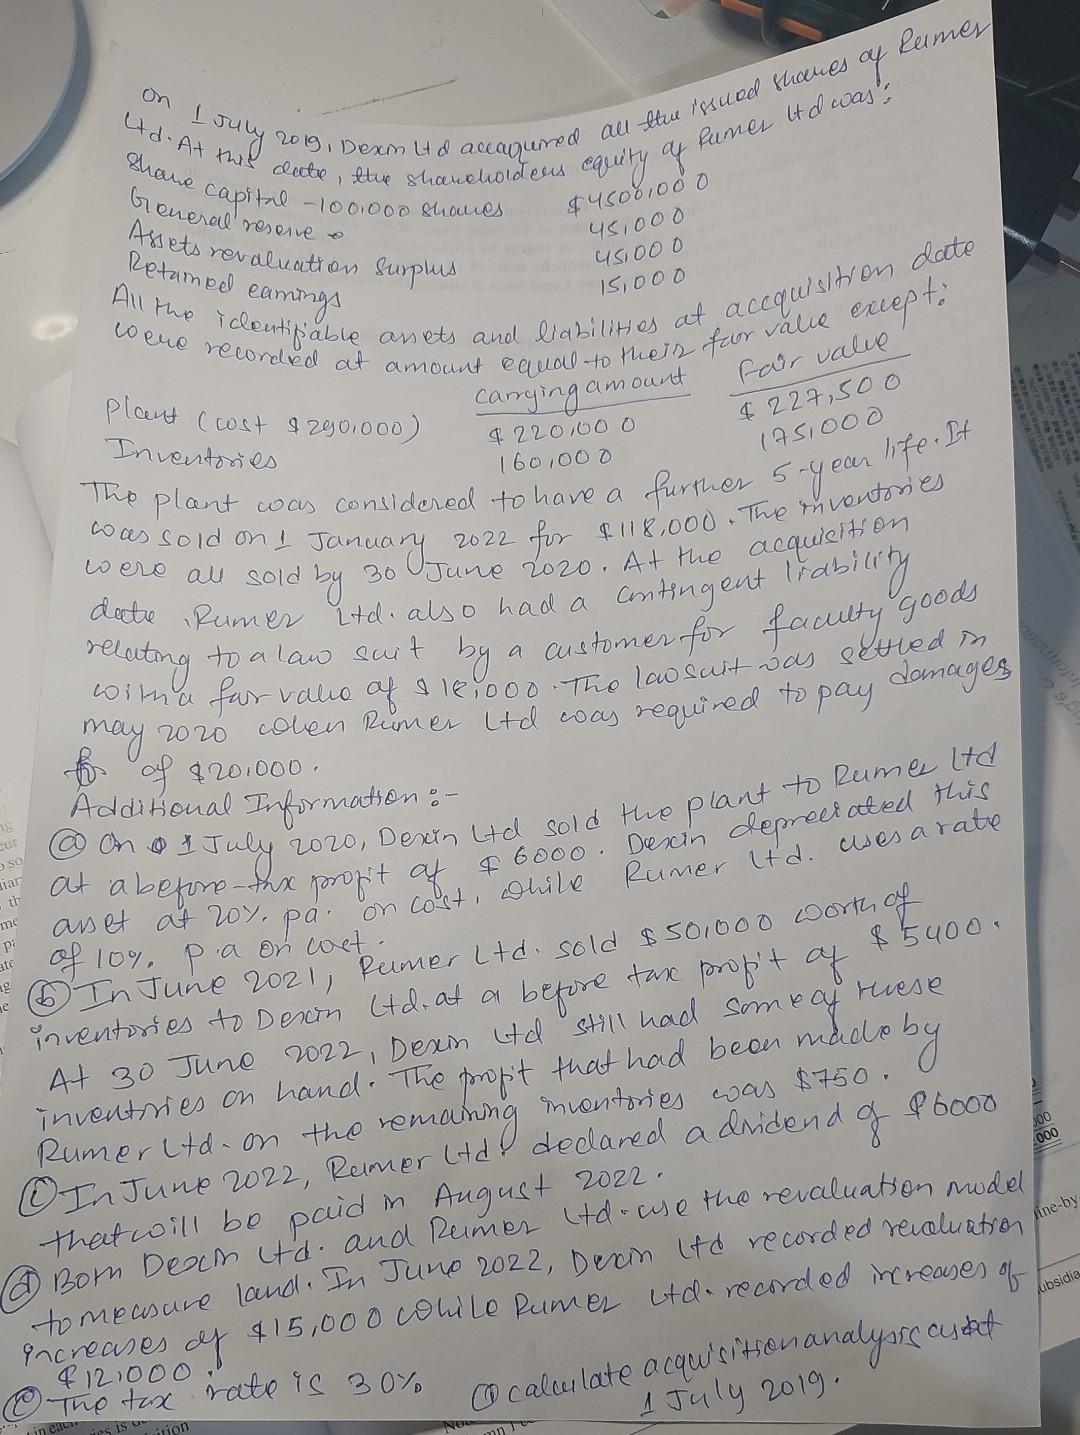 on 1 July 2019, Dexin Ltd accaqurred all the issued shares of Rumer
Ltd. At this date, the shareholders equity of Rumer Ltd was:
Share capital - 100,000 shares $4500,000
General reserve 45,000
Assets revaluation Surplus 45,000
Retained earnings 15,000
All the identifiable assets and liabilities at accquisition date
were recorded at amount equal to their fair value except:
carrying amount Fair value
Plant (cost $290,000) $220,000 $227,500
Inventories 160,000 175,000
The plant was considered to have a further 5-year life. It
was sold on 1 January 2022 for $118,000. The inventories
were all sold by 30 June 2020. At the acquisition
date, Rumer Ltd. also had a contingent liability
relating to a law suit by a customer for faculty goods
with a fair value of $18,000. The lawsuit was settled in
may 2020 when Rumer Ltd was required to pay damages
of $20,000.
Additional Information :-
(a) On 1 July 2020, Dexin Ltd sold the plant to Rumer Ltd
at a before-tax profit of $6000. Dexin depreciated this
asset at 20% pa. on cost, while Rumer Ltd. uses a rate
of 10% p.a on cost.
(b) In June 2021, Rumer Ltd. sold $50,000 worth of
inventories to Dexin Ltd. at a before tax profit of $5400.
At 30 June 2022, Dexin Ltd still had some of these
inventories on hand. The profit that had been made by
Rumer Ltd. on the remaining inventories was $750.
(c) In June 2022, Rumer Ltd. declared a dividend of $6000
that will be paid in August 2022.
(d) Both Dexin Ltd. and Rumer Ltd. use the revaluation model
to measure land. In June 2022, Dexin Ltd recorded revaluation
increases of $15,000 while Rumer Ltd. recorded increases of
$12,000.
(e) The tax rate is 30% (1) calculate acquisition analysis as at
1 July 2019.